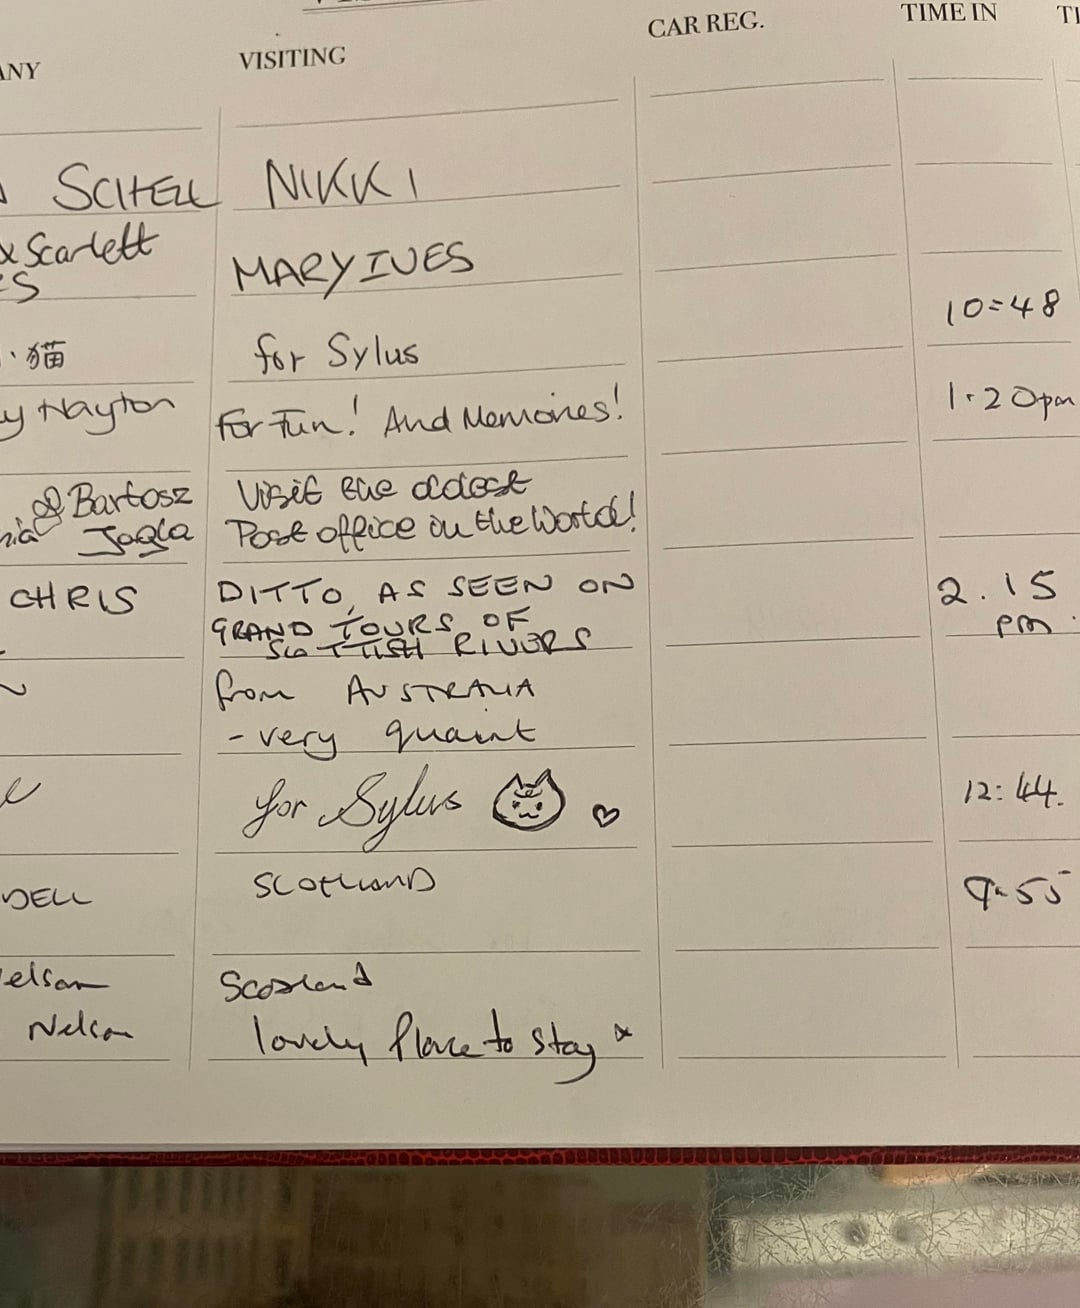 VISITING CAR REG. TIME IN
SCITELL NIKKI
& Scarlett MARY IVES
ES
10=48
猫 for Sylus
1.20pm
y Nayton For Fun! And Memories!
of Bartosz Visit the oldest
Jogla Post office in the World!
CHRIS DITTO, AS SEEN ON 2.15
GRAND TOURS OF pm.
SCOTTISH RIVERS
from AUSTRALIA
- very quaint
for Sylus 12:44.
DELL SCOTLAND 9.55
elson Scotland
Nelson lovely Place to stay x